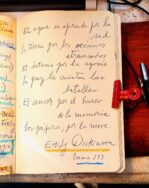 El agua se aprende por la
sed
la tierra por los océanos
atravesados
El éxtasis por la agonía
La paz la cuentan las
batallas
El amor por el hueco
de la memoria
Los pájaros, por la nieve
EMILY Dickinson
Poema 135